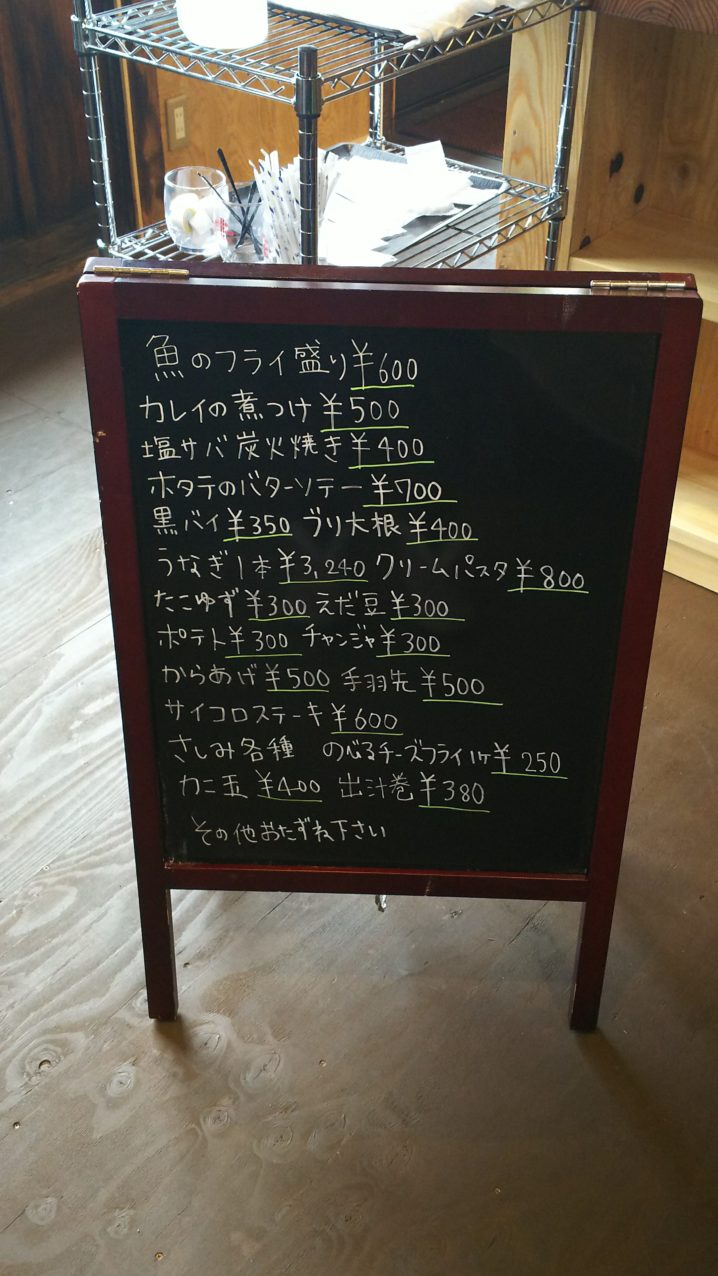 魚のフライ盛り¥600
カレイの煮つけ¥500
塩サバ炭火焼き¥400
ホタテのバターソテー¥700
黒バイ¥350 ブリ大根¥400
うなぎ1本¥3,240 クリームパスタ¥800
たこゆず¥300 えだ豆¥300
ポテト¥300 チャンジャ¥300
からあげ¥500 手羽先¥500
サイコロステーキ¥600
さしみ各種 のびるチーズフライ1ヶ¥250
カニ玉¥400 出汁巻¥380
その他おたずね下さい